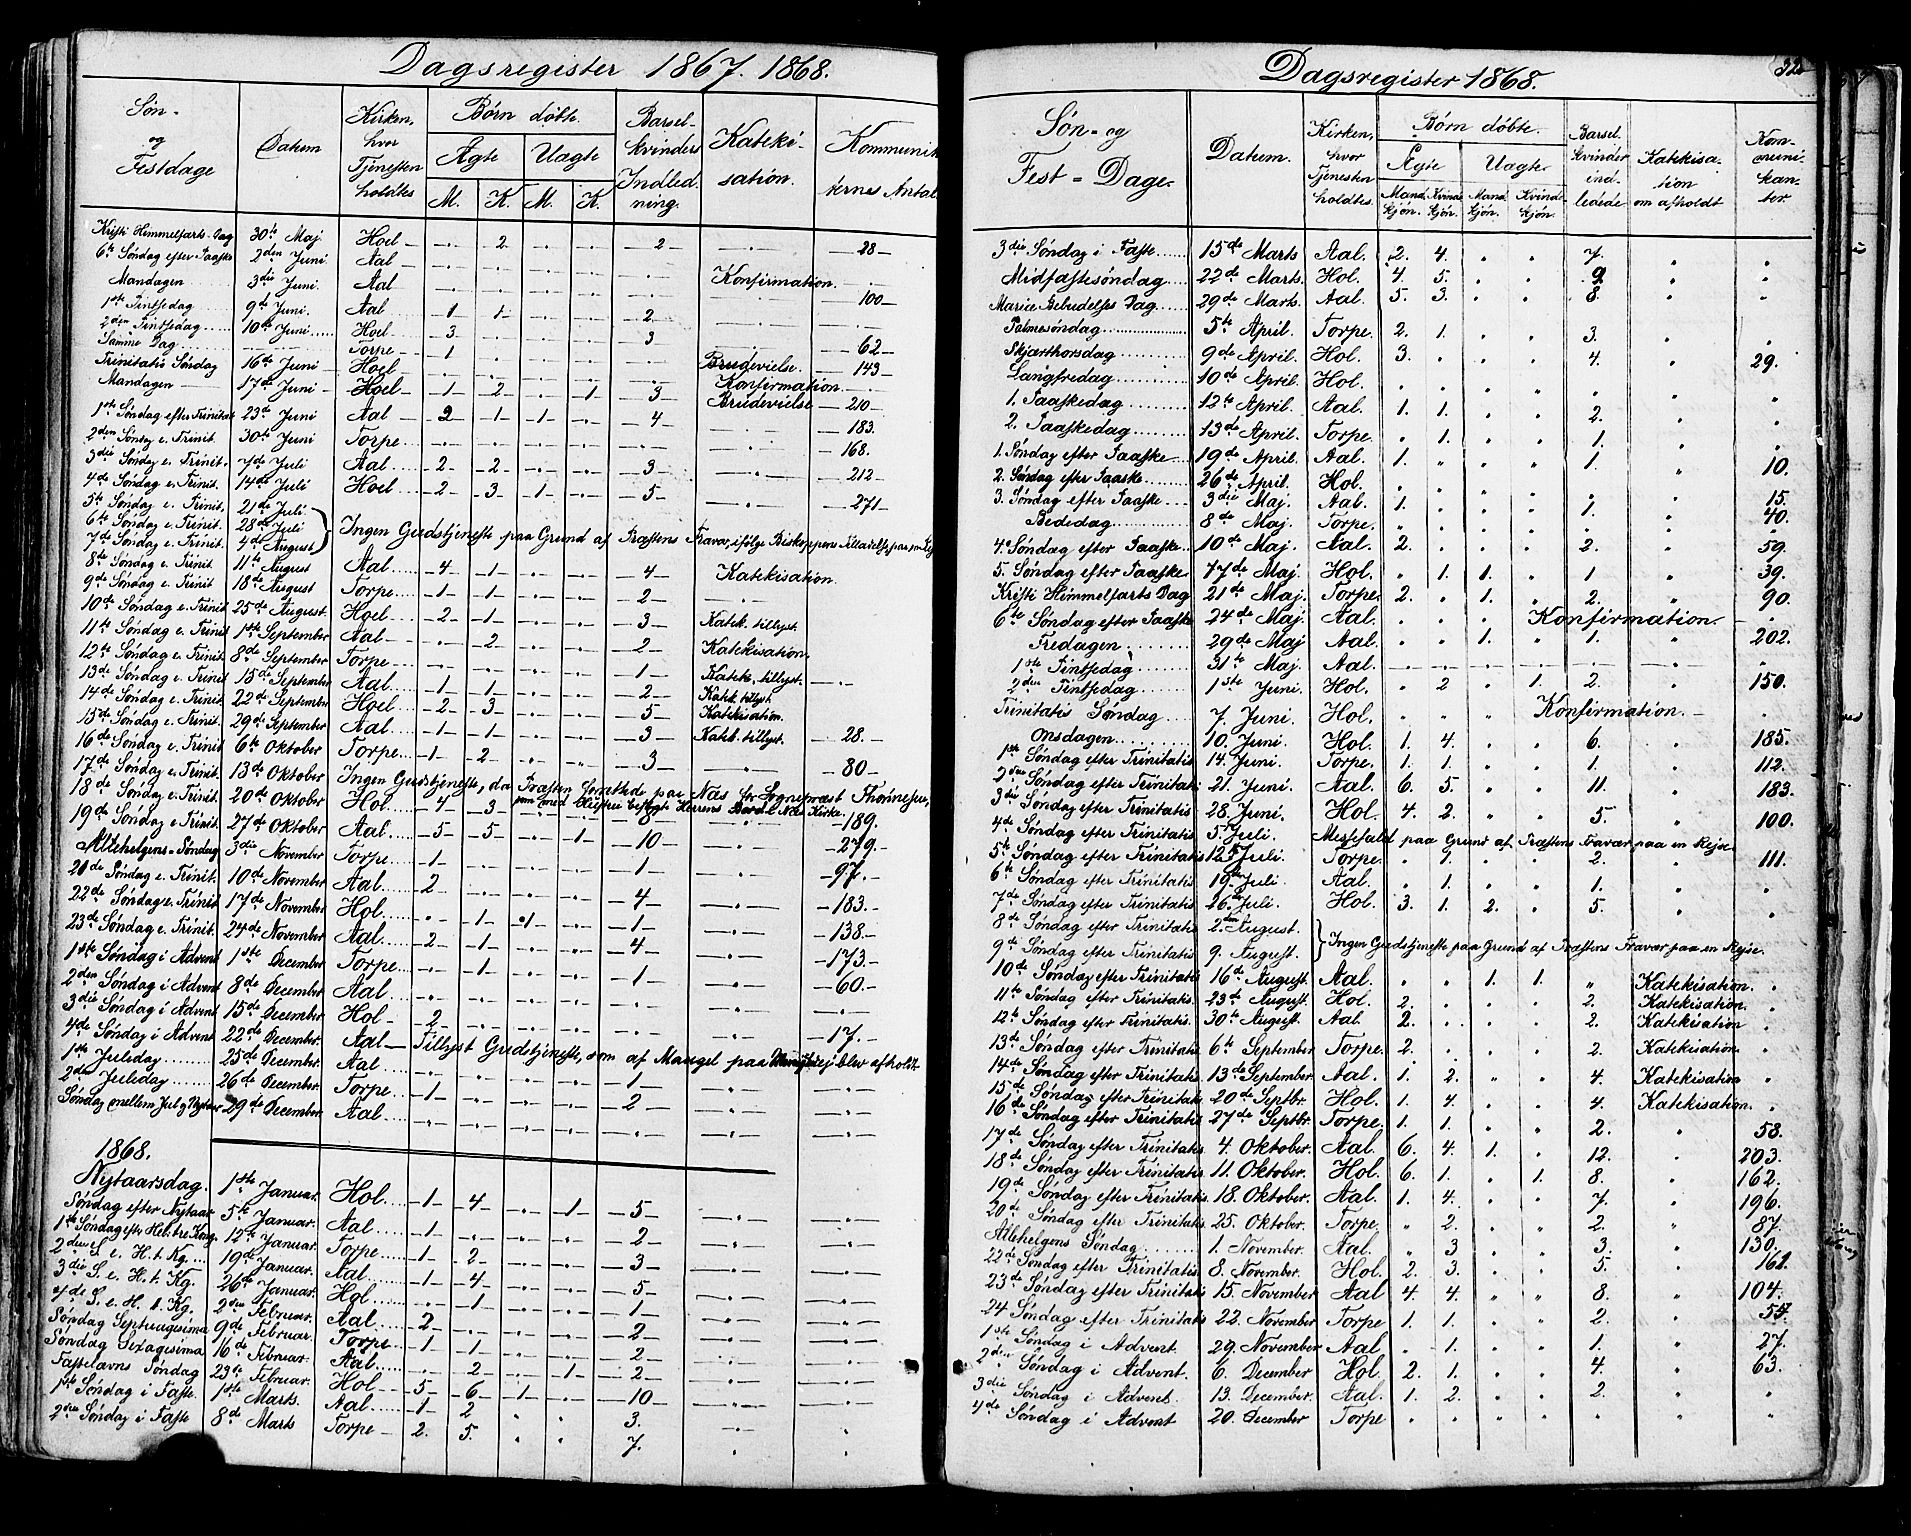 Dagsregister 1867. 1868.
Søn- og Festdage | Datum | Kirken, hvor Tjenesten holdtes | Børn døbte. Ægte M. K. Uægte M. K. | Barselkvinders Indledning. | Katekisation. | Kommunikternes Antal
Kristi Himmelfarts-Dag 30te Maj Hoel -.- 2 -.- -.- -2- -.- -28-
6te Søndag efter Paaske 2den Juni Aal
Mandagen 3die Juni. Aal Konfirmation. -100-
1ste Pintsedag 9de Juni. Aal -1- -1- -.- -.- -2-
2den Pintsedag 10de Juni. Hoel -3- -.- -.- -.- -3- -.- -62-
Samme Dag Torpe -1-
Trinitatis Søndag 16de Juni Hoel Brudevielse. -143-
Mandagen 17de Juni Hoel -1- -2- -.- -1- -3- Konfirmation
1ste Søndag efter Trinitat. 23de Juni Aal -2- -1- -1- -.- -4- Brudevielse -210-
2den Søndag e. Trinit. 30te Juni Torpe -183.
3die Søndag e. Trinit. 7de Juli Aal -2- -2- -.- -.- -3- -168.
4de Søndag e. Trinit. 14de Juli Hoel -2- -3- -1- -.- -5- -212.
5te Søndag e. Trinit. 21de Juli -271-
6te Søndag e. Trinit. 28de Juli Ingen Gudstjeneste paa Grund af Præstens Fravær, ifølge Biskoppens Tilladelse, paa en
7de Søndag e. Trinit. 4de August
8de Søndag e. Trinit. 11te August Aal -4- -1- -.- -.- -4- Katekisation.
9de Søndag e. Trinit 18de August Torpe -1- -1- -.- -.- -2-
10de Søndag e. Trinit 25de August. Hoel -2- -1- -.- -.- -3- Katek. tillyst.
11te Søndag e. Trinit 1ste September Aal -.- -2- -.- -.- -2- Katekisation.
12te Søndag e. Trinit. 8de September Torpe -1- Katek. tillyst.
13de Søndag e. Trinit. 15de September Aal -1- -1- -.- -.- -2- Katek. tillyst.
14de Søndag e. Trinit. 22de September Hoel -2- -3- -.- -.- -5- Katekisation.
15de Søndag e. Trinit. 29de September Aal -1- -1- -.- -.- -3- Katek. tillyst. -28.
16de Søndag e. Trinit 6te Oktober Torpe -1- -2- -.- -.- -3- -80-
17de Søndag e. Trinit. 13de Oktober Ingen Gudstjeneste, da Præsten forrettede paa Næs for Sognepræst Thonnesen,
18de Søndag e. Trinit. 20de Oktober Hol. -4- -3- -8- -189.
19de Søndag e. Trinit. 27de Oktober Aal -5- -5- -.- -1- -10- -279.-
Allehelgens-Søndag 3die November Torpe -1- -.- -.- -.- -1- -97.-
20de Søndag e. Trinit. 10de November Aal -2- -.- -.- -.- -4- -183.-
22de Søndag e. Trinit 17de November Hol. -.- -1- -1- -.- -138.-
23de Søndag e. Trinit. 24de November Aal. -2- -1- -.- -.- -4- -173.-
1ste Søndag i Advent 1ste December. Torpe -.- -1- -.- -.- -1- -60.-
2den Søndag i Advent 8de December. Aal
3die Søndag i Advent 15de December Hol -2- -17.-
4de Søndag i Advent 22de December. Aal - Tillyst Gudstjeneste, som af Mangel paa ej blev afholdt
1ste Juledag 25de December. Aal
2de Juledag 26de December. Torpe -1- -.- -.- -.- -1-
Søndag mellem Jul og Nytaar 29de December. Aal -2-
1868.
Nytaarsdag. 1ste Januar. Hol. -1- -4- -.- -1- -5-
Søndag efter Nytaar 5te Januar. Aal -1- -.- -.- -.- -2-
1ste Søndag eft. Hel. tre Kong. 12te Januar. Torpe -1- -2- -.- -.- -3-
2den S. e. H. t. Kg. 19de Januar. Aal -1- -4- -.- -.- -5-
3die S. e. H. t. Kg. 26de Januar. Hol -.- -1- -.- -.- -1-
4de S. e. H. t. Kg. 2den Februar. Aal -2- -.- -.- -.- -2-
Søndag Septuagesima 9de Februar. Torpe -1- -1- -.- -.- -2-
Søndag Sexagesima 16de Februar. Aal -.- -2- -.- -1- -2-
Fastelavns Søndag 23de Februar. Hol -5- -6- -1- -.- -10-
1ste Søndag i Faste. 1ste Marts. Aal -1- -2 " " 3.
2den Søndag i Faste 8de Marts Torpe 2. 5. " " 7.
Dagsregister 1868.
32
Søn- og Fest-Dage. | Datum. | Kirken, hvor Tjenesten holdtes. | Børn døbte. Ægte Mandkjøn. Kvindekjøn. Uægte Mandkjøn. Kvindekjøn. | Barselkvinder indledede | Katekisation om afholdt | Kommunikanter
3die Søndag i Faste 15de Marts Aal 2. 4. " " 7. " "
Midfastesøndag 22de Marts. Hol. 4. 5. " " 9. " "
Mariæ Bebudelses Dag 29de Marts. Aal 5. 3. " " 8. " "
Palmesøndag 5te April. Torpe 2. 1. " " 3. " "
Skjærthorsdag 9de April. Hol. 3. " " " 4. " 29.
Langfredag 10de April. Hol. " " " " " " "
1. Paaskedag 12te April. Aal. 1. 1. " " 2. " "
2. Paaskedag 13de April. Torpe. " 1. " " 1. " "
1. Søndag efter Paaske 19de April. Aal. 1. " " " 1. " 10.
2. Søndag efter Paaske 26de April. Hol. " " " " " " 15.
3. Søndag efter Paaske 3die Maj. Aal. 1. " " " 1. " 40.
Bededag 8de Maj. Torpe. " " " " " "
4. Søndag efter Paaske 10de Maj. Aal. 2. " " " 2. " 59.
5. Søndag efter Paaske 17de Maj. Hol. " 1. 1. " 1 " 39.
Kristi Himmelfarts Dag 21de Maj. Torpe 2. " 1. " 2. " 90.
6te Søndag efter Paaske 24de Maj. Aal. Konfirmation.
Fredagen 29de Maj Aal. " " 1. " 1. " 202.
1ste Pintsedag 31te Maj. Aal.
2den Pintsedag 1ste Juni. Hol. " 2 " 1. 2. " 150.
Trinitatis Søndag 7. Juni. Hol. " " " Konfirmation.
Onsdagen 10. Juni. Hol. 1. 4. " " 6. " 185.
1ste Søndag efter Trinitatis 14. Juni. Torpe. 1. 1. " " 1. " 112.
2den Søndag efter Trinitatis 21. Juni. Aal. 6. 5. " " 11. " 183.
3die Søndag efter Trinitatis 28. Juni. Hol. 4. 2. " " 5. " 100.
4de Søndag efter Trinitatis 5. Juli. Messefald paa Grund af Præstens Fravær paa en Rejse
5te Søndag efter Trinitatis 12. Juli. Torpe. " 1. " " 2. " 111.
6te Søndag efter Trinitatis 19. Juli. Aal. " 1. " " 1. " "
7de Søndag efter Trinitatis 26. Juli. Hol. 3. 1. 2. " 5. " "
8de Søndag efter Trinitatis 2. August. Ingen Gudstjeneste paa Grund af Præstens Fravær paa en Rejse.
9de Søndag efter Trinitatis 9. August.
10de Søndag efter Trinitatis 16de August. Aal. " " 1. 1. " Katekisation. "
11te Søndag efter Trinitatis. 23de August. Hol. 2. " " " 2. Katekisation. "
12te Søndag efter Trinitatis. 30te August. Aal. 2. " " " 2. Katekisation "
13de Søndag efter Trinitatis. 6te September Torpe. 2. " " " 2. Katekisation.
14de Søndag efter Trinitatis 13de September. Aal. 1. 2. " " 4. Katekisation "
15de Søndag efter Trinitatis. 20de Septbr. Hol. 1. 4. " " 4. Katekisation. "
16de Søndag efter Trinitatis 27de Septbr. Torpe. 1. 1. " " 2. " 58.
17de Søndag efter Trinitatis 4. Oktober. Aal 6. 4. 1. " 12. " 203.
18de Søndag efter Trinitatis 11. Oktober. Hol. 6. 1. " 1. 8. " 162.
19de Søndag efter Trinitatis 18. Oktober. Aal. 1. 4. " " 7. " 196.
20de Søndag efter Trinitatis 25. Oktober. Torpe. " 2. " " 2. " 87.
Allehelgens Søndag 1. November. Aal. " 3 " " 3. " 130.
22de Søndag efter Trinitatis 8. November. Hol. 2. 3. " " 5. " 161.
23de Søndag efter Trinitatis 15. November Aal 4. 4. " " 8. " 104.
24 Søndag efter Trinitatis 22. November Torpe 1. 1. " " 2. " 54.
1ste Søndag i Advent 29. November Aal " 1. " " 1. " 27.
2den Søndag i Advent. 6. December Hol 2. 1. " " 4. " 63.
3die Søndag i Advent. 13. December. Aal. 1. 2. " " 2. " "
4de Søndag i Advent 20. December Torpe " " " " " " "